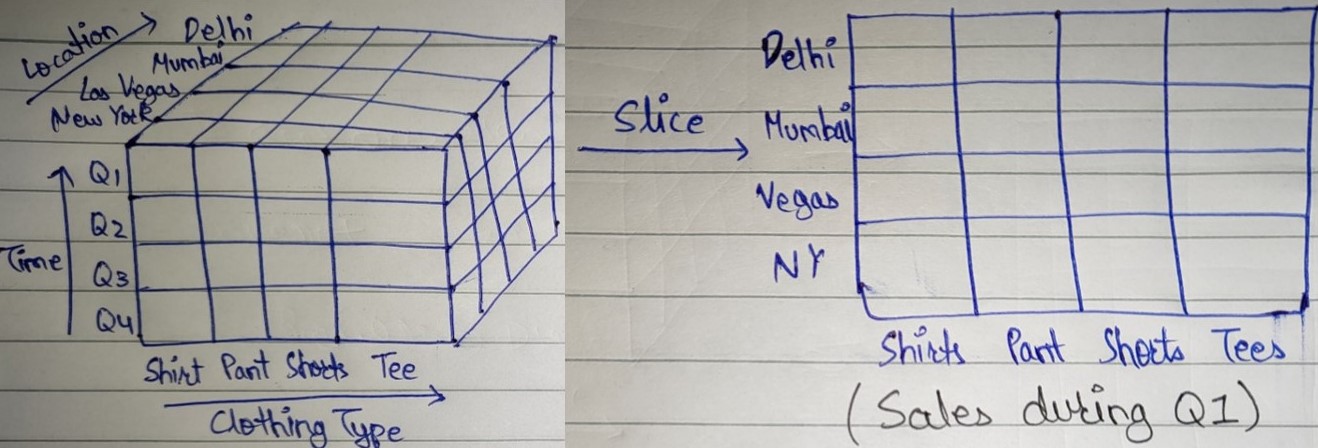 Location
Delhi
Mumbai
Las Vegas
New York
Time
Q1
Q2
Q3
Q4
Shirt Pant Shorts Tee
Clothing Type
Slice
Delhi
Mumbai
Vegas
NY
Shirts Pant Shorts Tees
(Sales during Q1)